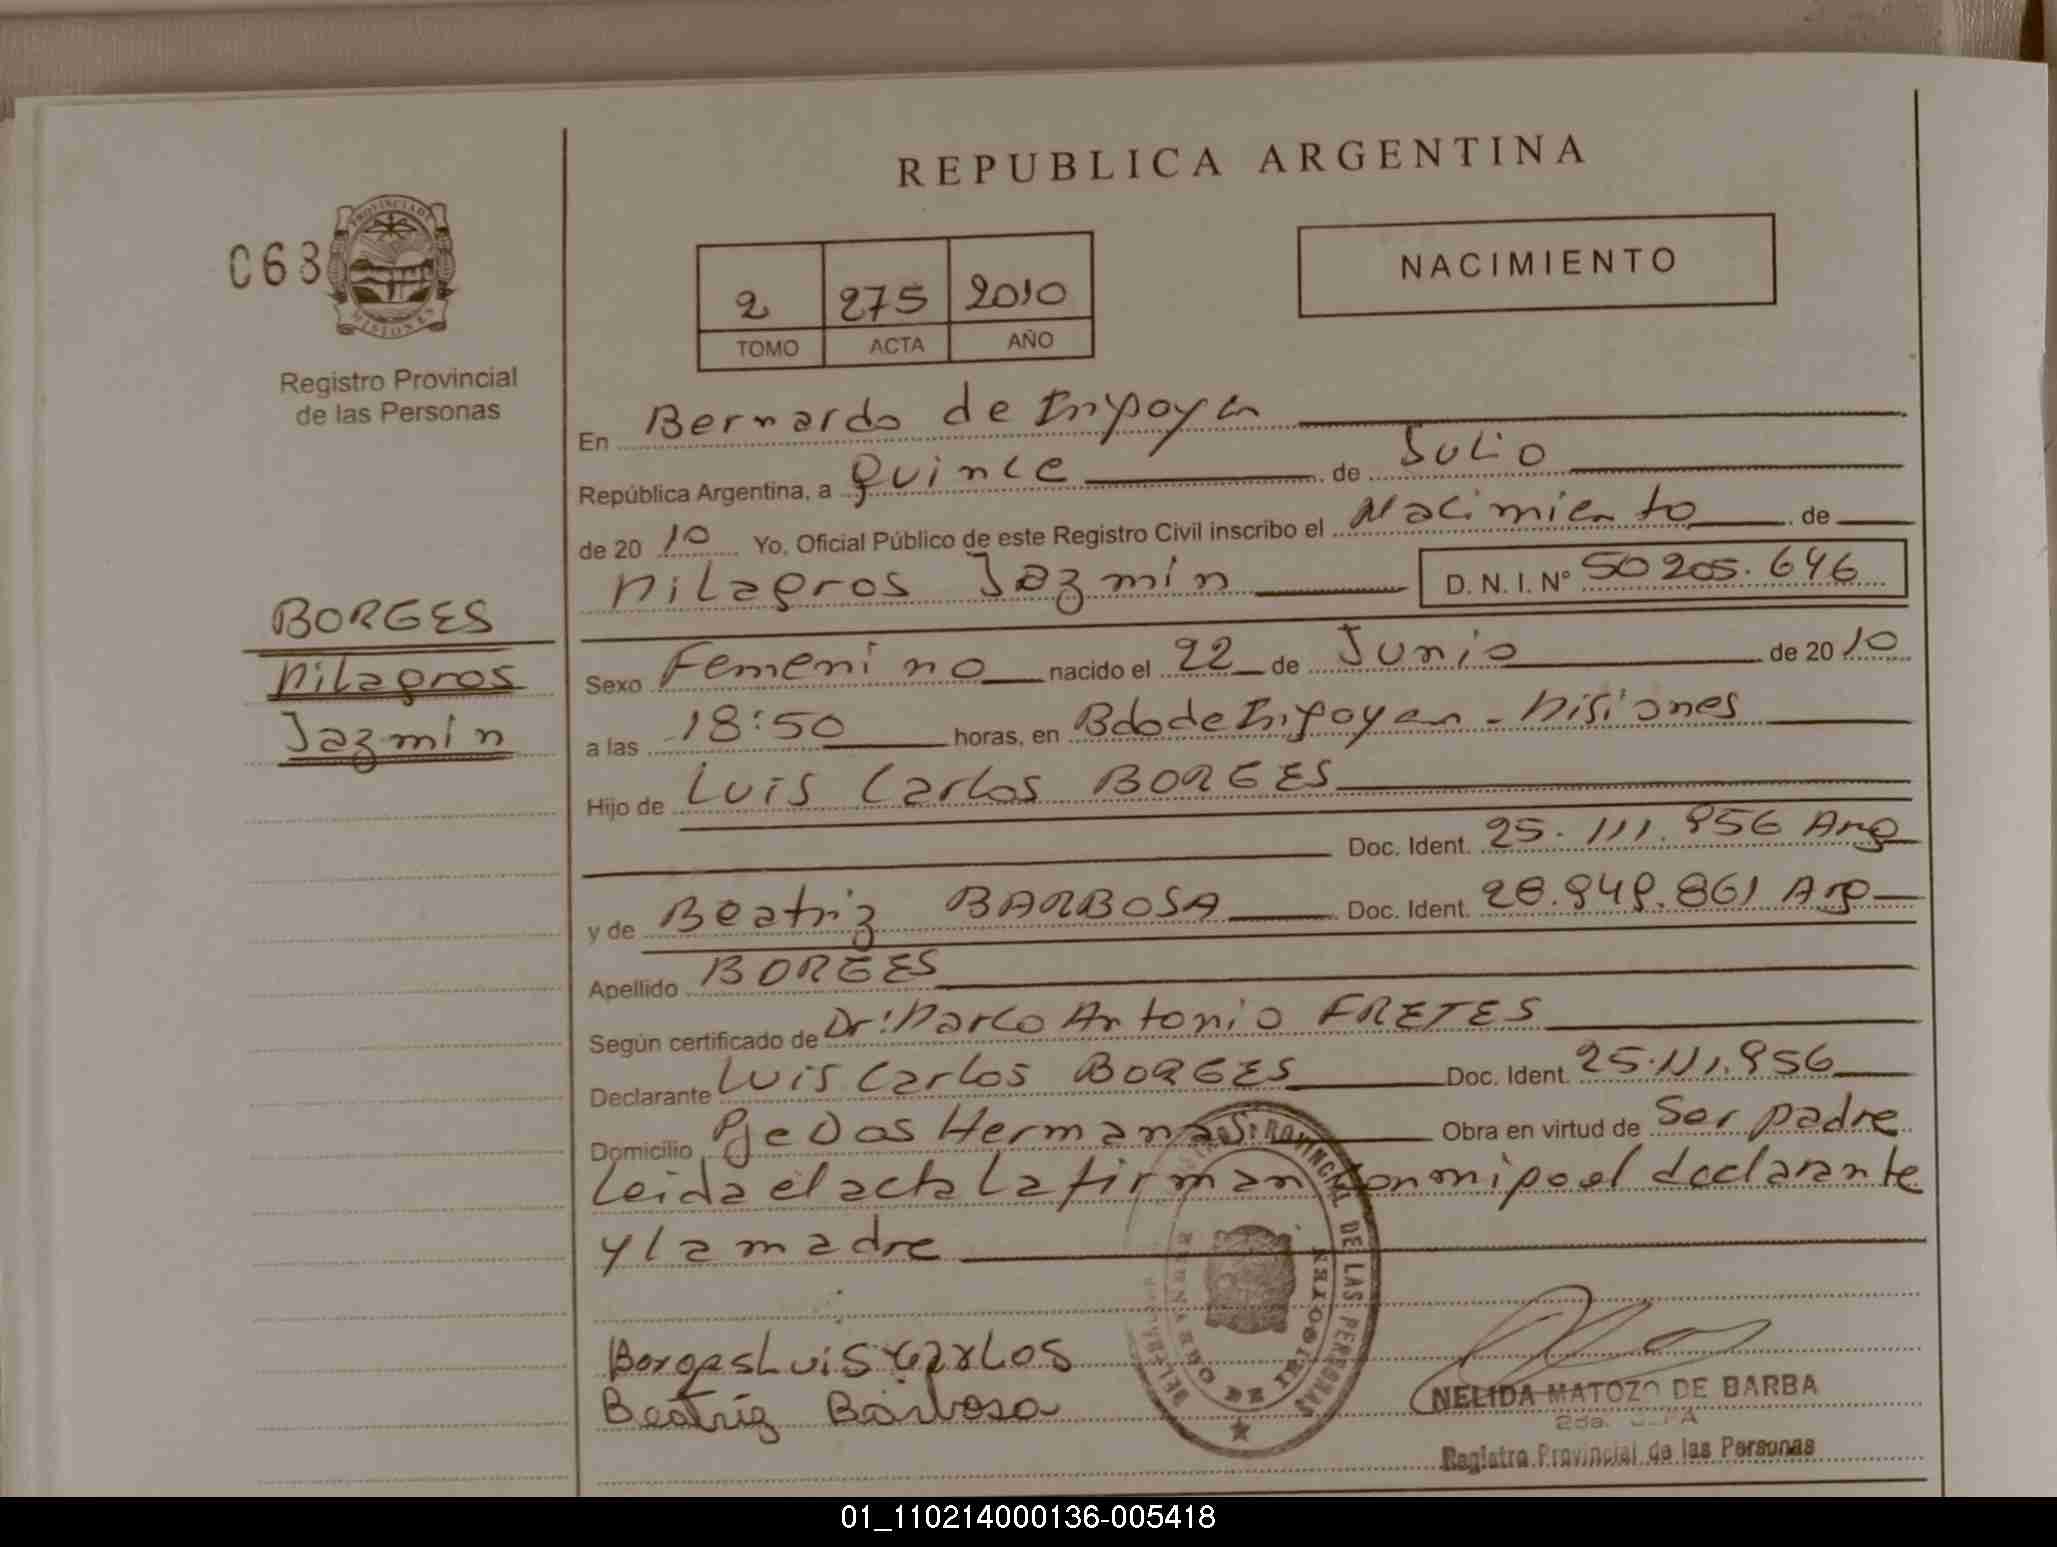 REPUBLICA ARGENTINA
C68
PROVINCIA DE MISIONES
Registro Provincial
de las Personas
2 275 2010
TOMO ACTA AÑO
NACIMIENTO
En Bernardo de Irigoyen
República Argentina, a Quince de Julio
de 2010 Yo, Oficial Público de este Registro Civil inscribo el Nacimiento de
Milagros Jazmín D. N. I. Nº 50205.646
BORGES
Milagros
Jazmín
Sexo Femenino nacido el 22 de Junio de 2010
a las 18:50 horas, en Bdo de Irigoyen - Misiones
Hijo de Luis Carlos BORGES
Doc. Ident. 25.111.956 Arg
y de Beatriz BARBOSA Doc. Ident. 28.949.861 Arg
Apellido BORGES
Según certificado de Dr: Marco Antonio FRETES
Declarante Luis Carlos BORGES Doc. Ident. 25.111.956
Domicilio Pje Dos Hermanas Obra en virtud de Ser padre
Leida el acta la firman conmigo el declarante
y la madre
REGISTRO PROVINCIAL DE LAS PERSONAS
BERNARDO DE IRIGOYEN
Borges Luis Carlos
Beatriz Barbosa
NELIDA MATOZO DE BARBA
2da. JEFA
Registro Provincial de las Personas
01_110214000136-005418